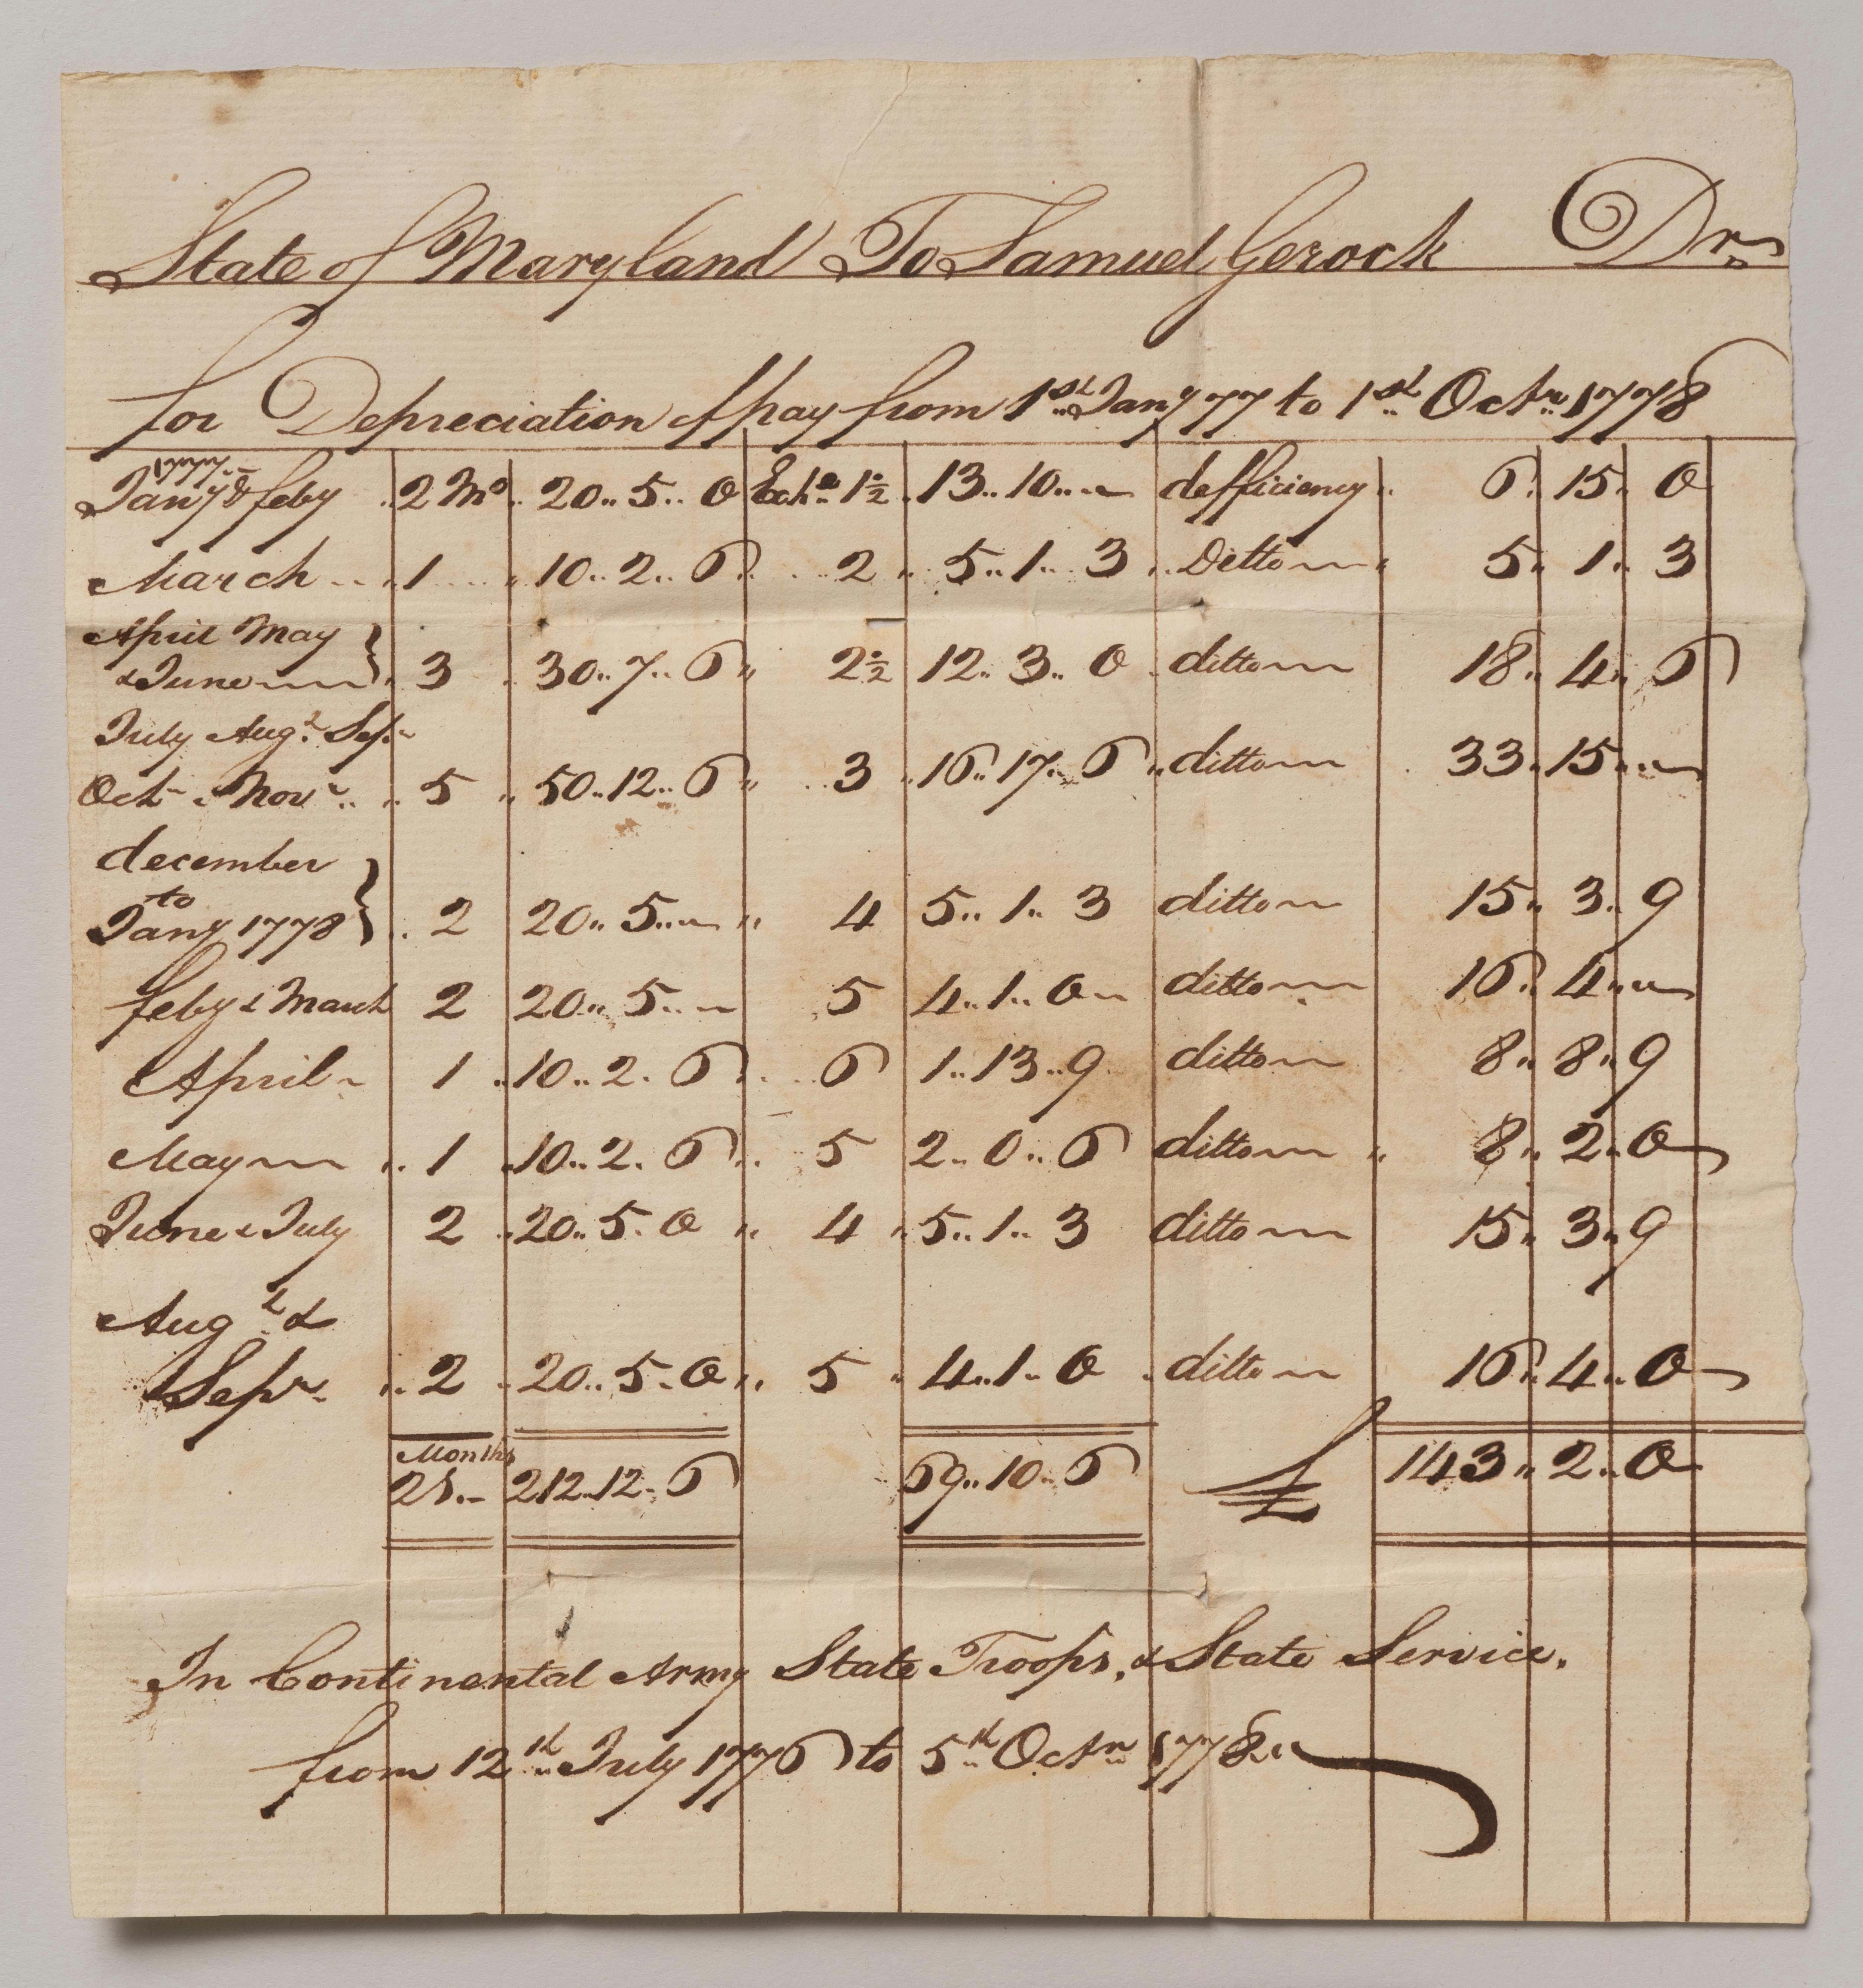 State of Maryland To Samuel Gerock Dr
for Depreciation of pay from 1st Jany 77 to 1st Octr 1778
1777
Jany & feby .. 2 Mo .. 20.. 5.. 0 Exha 1½ .. 13.. 10.. defficiency .. 6.. 15.. 0
March .. 1 .. 10.. 2.. 6 .. 2 .. 5.. 1.. 3 .. Ditto .. 5.. 1.. 3
April May
& June } 3 .. 30.. 7.. 6 .. 2½ 12.. 3.. 0 ditto 18.. 4.. 6
July Augt Sepr
Octr & Novr .. 5 .. 50.. 12.. 6 .. 3 .. 16.. 17.. 6 .. ditto 33.. 15..
december
to
Jany 1778 } .. 2 20.. 5.. .. 4 5.. 1.. 3 ditto 15.. 3.. 9
feby & March 2 20.. 5.. 5 4.. 1.. 0 ditto 16.. 4..
April 1 .. 10.. 2.. 6 .. 6 1.. 13.. 9 ditto 8.. 8.. 9
May .. 1 .. 10.. 2.. 6 .. 5 2.. 0.. 6 ditto .. 8.. 2.. 0
June & July 2 .. 20.. 5.. 0 .. 4 .. 5.. 1.. 3 ditto 15.. 3.. 9
Augt &
Sepr .. 2 .. 20.. 5.. 0 .. 5 .. 4.. 1.. 0 .. ditto 16.. 4.. 0
Months
21.. 212.. 12.. 6 69.. 10.. 6 £ 143.. 2.. 0
In Continental Army State Troops, & State Service.
from 12th July 1776 to 5th Octr 1778